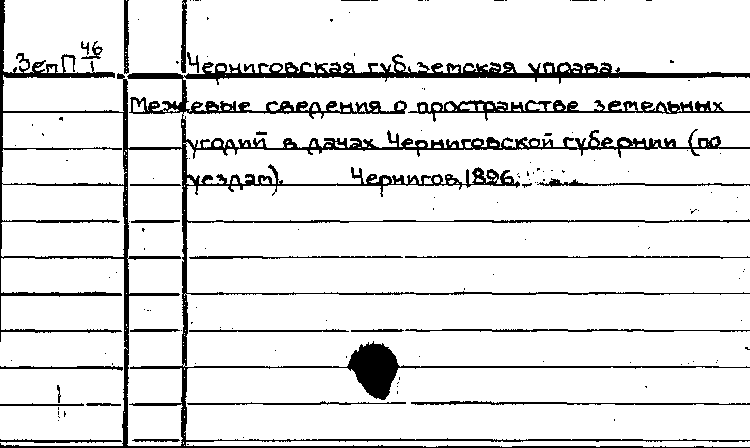 ЗемП 46/1 Черниговская губ. земская управа.
Межевые сведения о пространстве земельных
угодий в дачах Черниговской губернии (по
уездам). Чернигов, 1896.